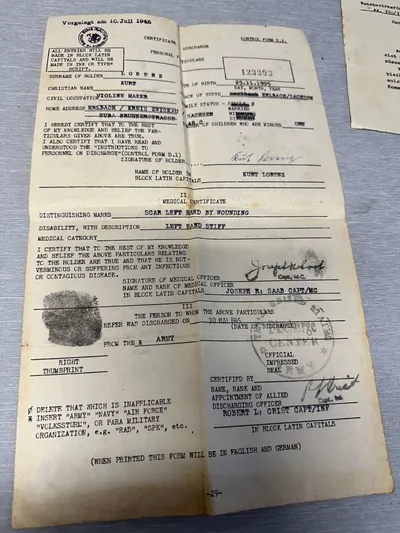 Vorgelegt am 10. Juli 1945
ALL ENTRIES WILL BE
MADE IN BLOCK LATIN
CAPITALS AND WILL BE
MADE IN INK OR TYPE-
SCRIPT.
CERTIFICATE DISCHARGE
CONTROL FORM D.2.
PERSONAL PARTICULARS
SURNAME OF HOLDER LORENZ
123393
CHRISTIAN NAME KURT
OF BIRTH 25.11.1905
DAY, MONTH, YEAR
CIVIL OCCUPATION VIOLINE MAKER
OF BIRTH ERLBACH/SACHSEN
HOME ADDRESS ERLBACH / KREIS
FAMILY STATUS - SINGLE
MARRIED
SACHSEN
OF CHILDREN WHO ARE MINORS ONE
I HEREBY CERTIFY THAT TO THE BEST
OF MY KNOWLEDGE AND BELIEF THE PAR-
TICULARS GIVEN ABOVE ARE TRUE.
I ALSO CERTIFY THAT I HAVE READ AND
UNDERSTOOD THE "INSTRUCTIONS TO
PERSONNEL ON DISCHARGE" (CONTROL FORM D.1)
SIGNATURE OF HOLDER Kurt Lorenz
NAME OF HOLDER IN
BLOCK LATIN CAPITALS
KURT LORENZ
II
MEDICAL CERTIFICATE
DISTINGUISHING MARKS SCAR LEFT HAND BY WOUNDING
DISABILITY, WITH DESCRIPTION LEFT HAND STIFF
MEDICAL CATEGORY
I CERTIFY THAT TO THE BEST OF MY KNOWLEDGE
AND BELIEF THE ABOVE PARTICULARS RELATING
TO THE HOLDER ARE TRUE AND THAT HE IS NOT
VERMINOUS OR SUFFERING FROM ANY INFECTIOUS
OR CONTAGIOUS DISEASE.
SIGNATURE OF MEDICAL OFFICER
Capt, M.C.
NAME AND RANK OF MEDICAL OFFICER
IN BLOCK LATIN CAPITALS
JOSEPH R: SAAB CAPT/MC
III
THE PERSON TO WHOM THE ABOVE PARTICULARS
REFER WAS DISCHARGED ON 30 MAI 1945
(DATE OF DISCHARGE)
FROM THE X ARMY
RIGHT
THUMBPRINT
OFFICIAL
IMPRESSED
SEAL
CERTIFIED BY
NAME, RANK AND
APPOINTMENT OF ALLIED
DISCHARGING OFFICER
ROBERT L: CRIST CAPT/INF
IN BLOCK LATIN CAPITALS
DELETE THAT WHICH IS INAPPLICABLE
INSERT "ARMY" "NAVY" "AIR FORCE"
"VOLKSSTURM", OR PARA MILITARY
ORGANIZATION, e.g. "RAD", "SPK", etc.
(WHEN PRINTED THIS FORM WILL BE IN ENGLISH AND GERMAN)
-29-